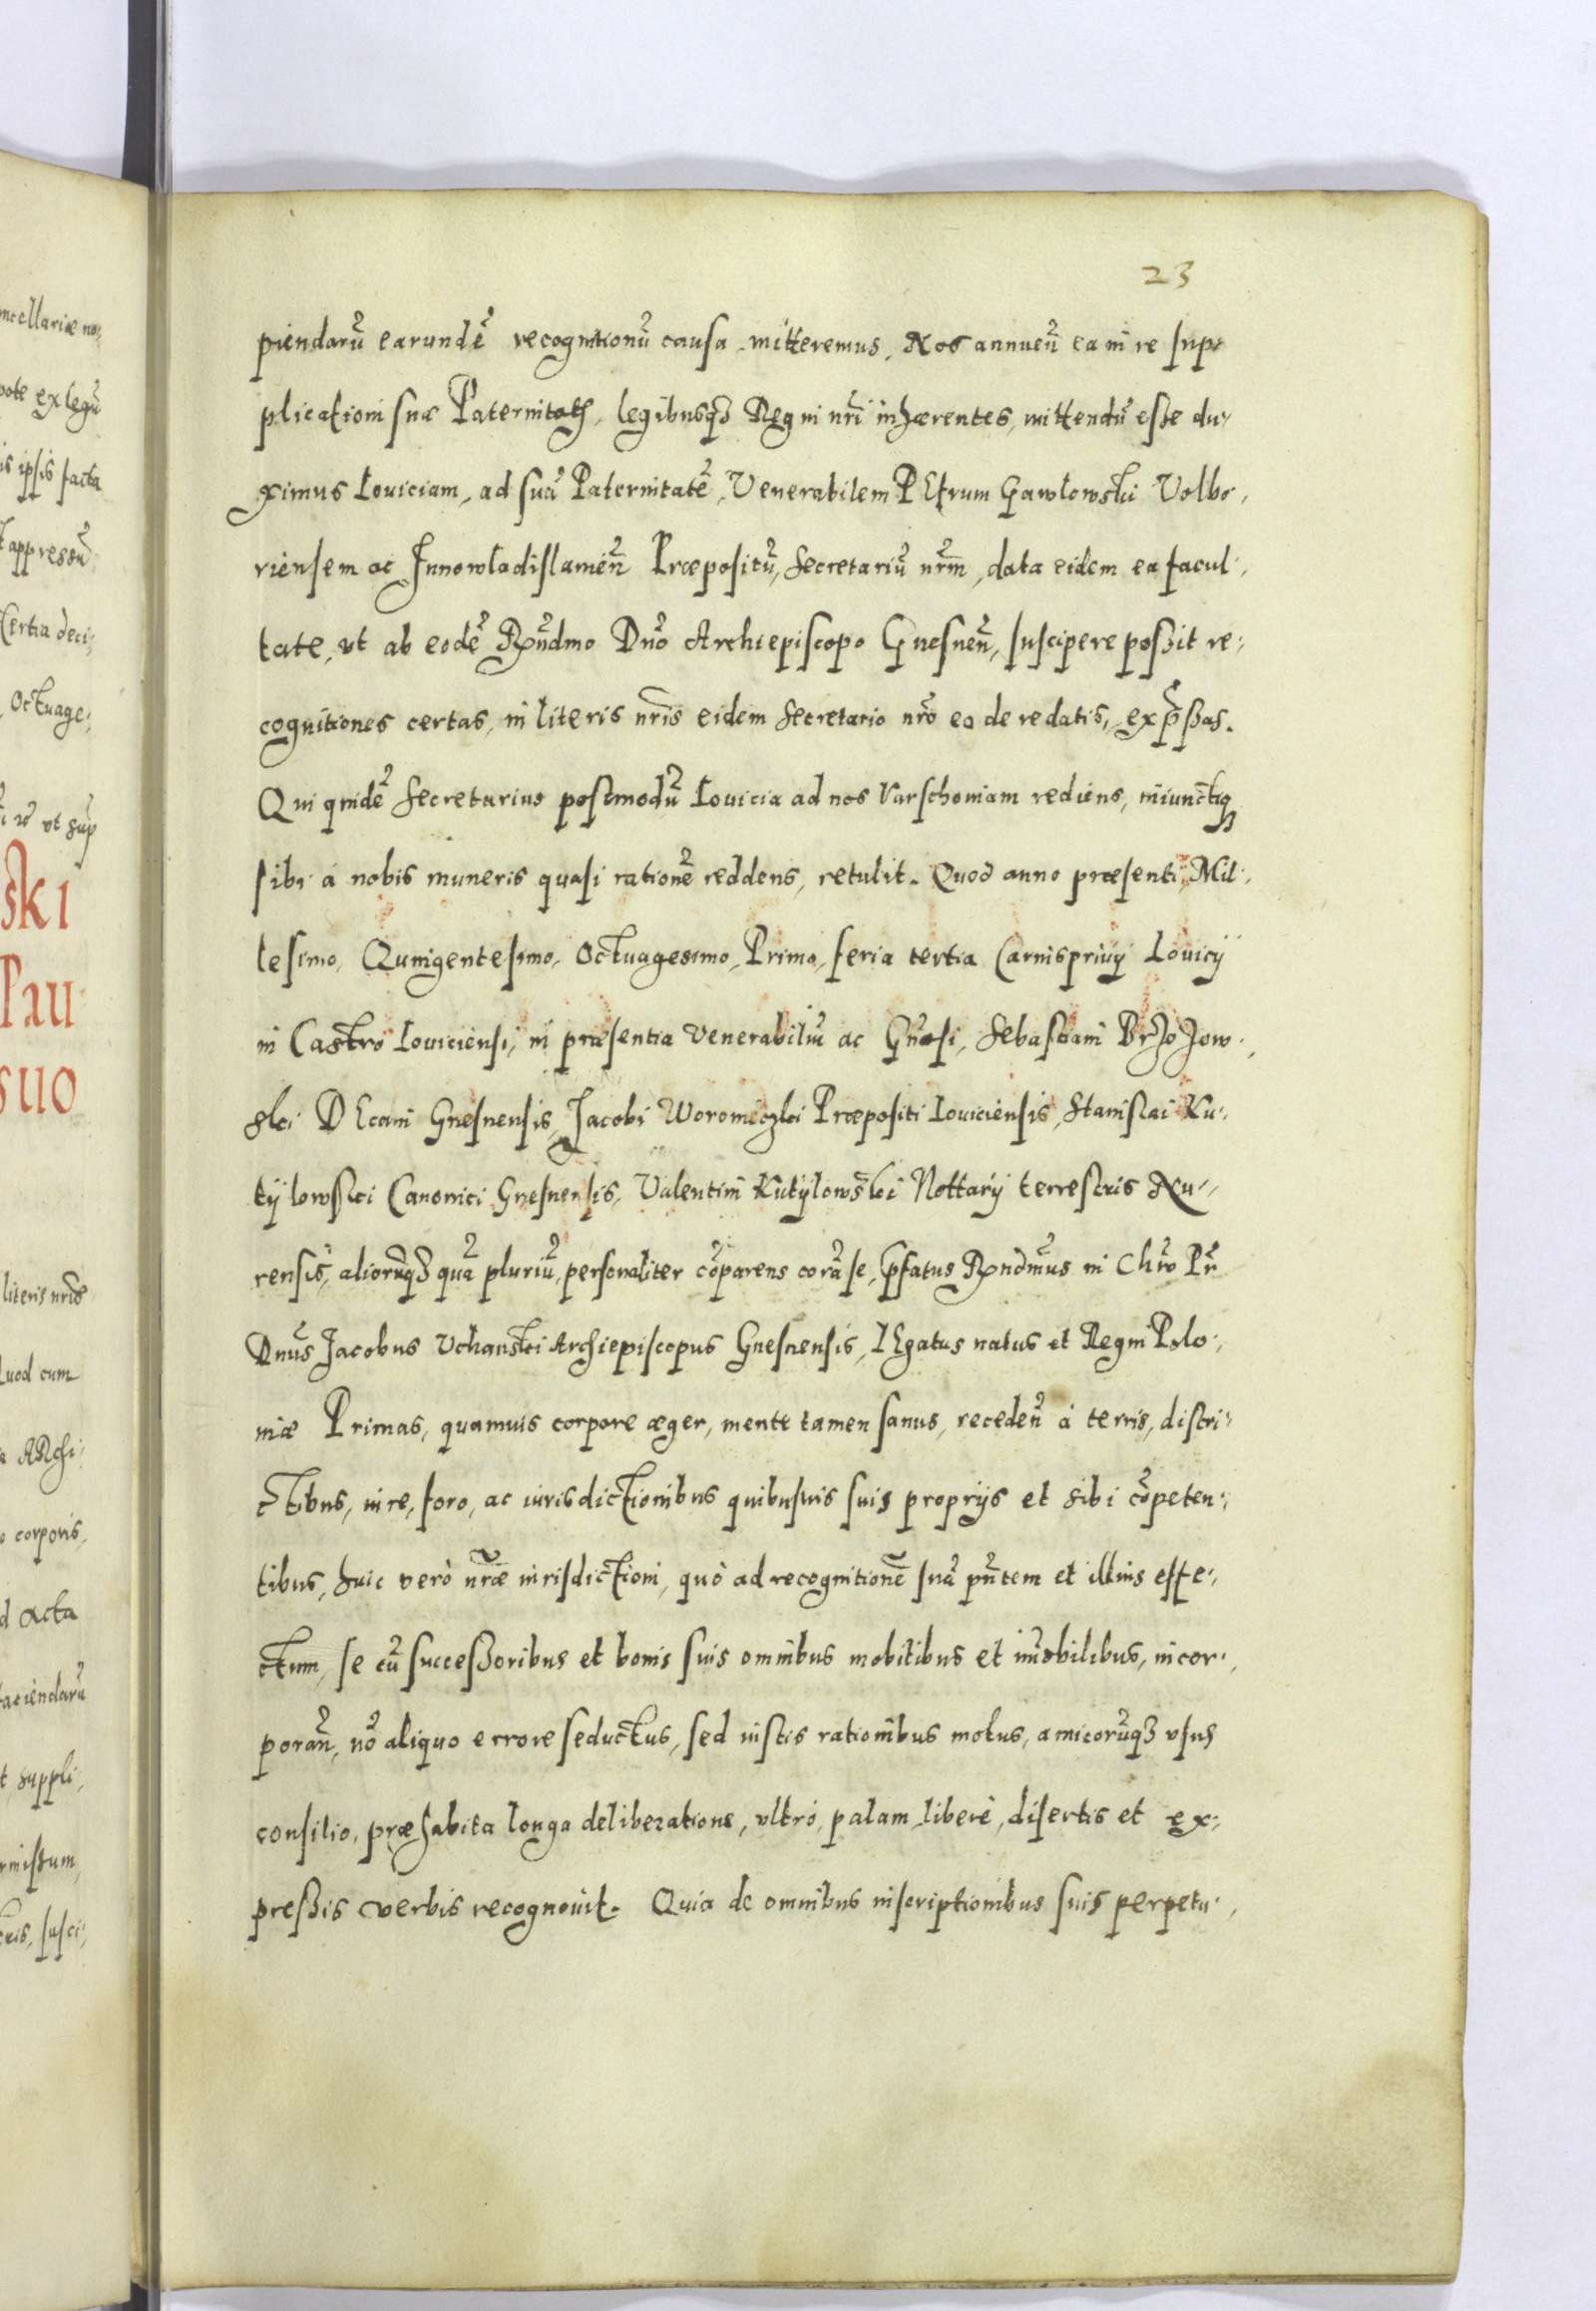 23
piendarũ earundẽ recognitionũ causa mitteremus. Nos annueñ ea in re sup,
plicationi suæ Paternitatis, legibusqꝫ Regni nr̃i inhærentes, mittendũ esse du,
ximus Louiciam, ad suã Paternitatẽ, Venerabilem PEtrum Gawlowski Volbo,
riensem ac Innowladislauień Præpositũ, Secretariũ nr̃m, data eidem ea facul,
tate, vt ab eodẽ Rñdmo Dño Archiepiscopo Gnesneñ, suscipere possit re,
cognitiones certas, in literis nr̃is eidem Secretario nr̃o eo de re datis, exp̃ssas.
Qui quidẽ Secretarius postmodũ Louicia ad nos Varschouiam rediens, iniunctiqꝫ
sibi á nobis muneris quasi rationẽ reddens, retulit. Quod anno præsenti, Mil,
lesimo, Quingentesimo, Octuagesimo, Primo, feria tertia Carnispriuij Louicij
in Castro Louiciensi, in præsentia Venerabiliũ ac Gñosi, Sebastiani Brzozow,
skei DEcani Gnesnensis, Jacobi Woromiczkei Præpositi Louiciensis, Stanislai Ku,
tijlowskei Canonici Gnesnensis, Valentini Kutijlowskei Nottarij terrestris Nu,
rensis, aliorũqꝫ quã pluriũ, personaliter cõparens corã se, p̃fatus Rñdmũs in Chr̃o Pr̃
Dnũs Jacobus Vchanskei Archiepiscopus Gnesnensis, LEgatus natus et Regni Polo,
niæ Primas, quamuis corpore æger, mente tamen sanus, recedeñ á terris, distri,
ctibus, iure, foro, ac iurisdictionibus quibusuis suis proprijs et sibi cõpeten,
tibus, huic verò nr̃æ iurisdictioni, quò ad recognitionẽ suã pñtem et illius effe,
ctum, se cũ successoribus et bonis suis omnibus mobilibus et im̃obilibus, incor,
porañ, nõ aliquo errore seductus, sed iustis rationibus motus, amicorũqꝫ vsus
consilio, præhabita longa deliberatione, vltrò, palam, liberè, disertis et ex,
pressis verbis recognouit. Quia de omnibus inscriptionibus suis perpetu,